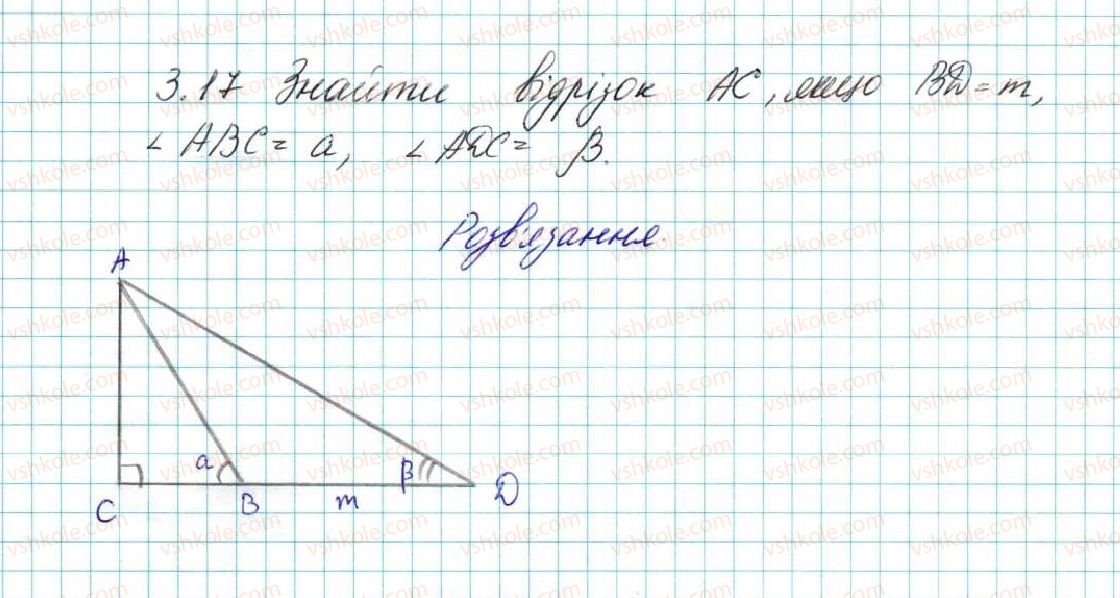 3.17 Знайти відрізок AC, якщо BD = m,
∠ ABC = a, ∠ ADC = β.
Розв'язання.
A
a
β
C
B
m
D
vshkole.com